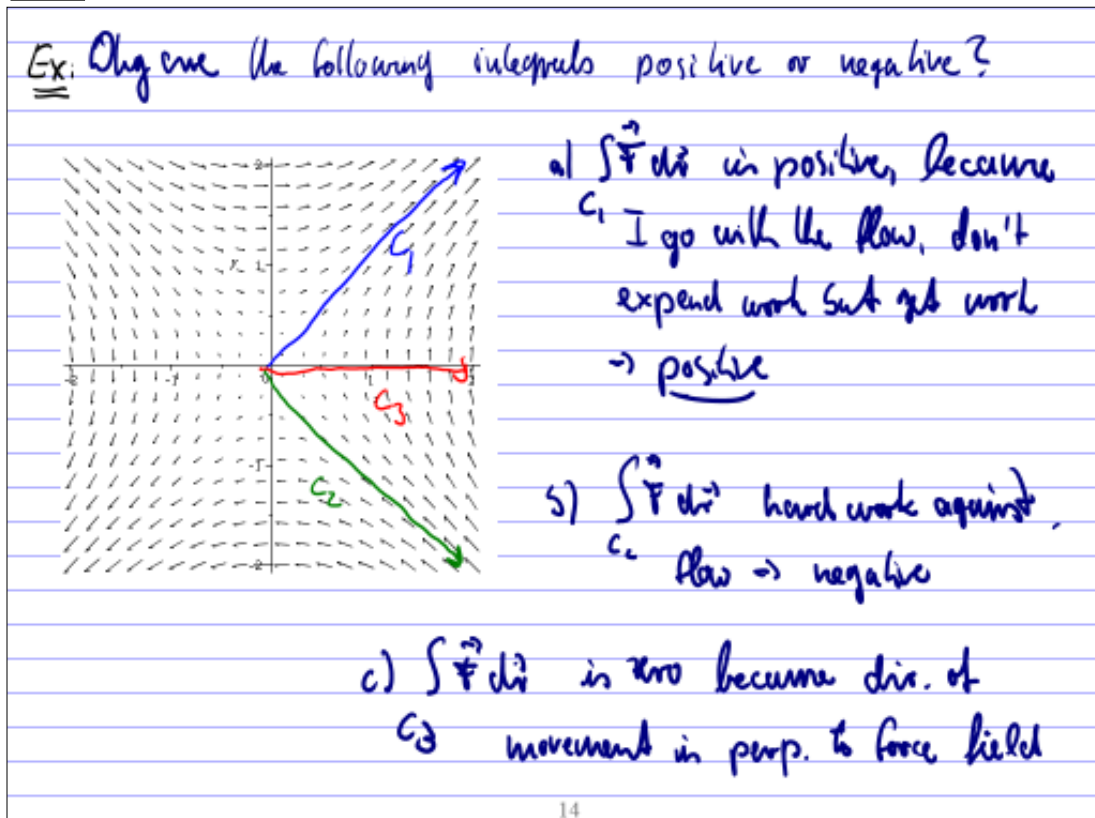 Ex: Why are the following integrals positive or negative?
a) ∫ F⃗ dr⃗ is positive, because
C₁ I go with the flow, don't
expend work but get work
→ positive
2
y 1
C₁
-2 -1 0 1 2
C₃
-1
C₂
-2
b) ∫ F⃗ dr⃗ hard work against
C₂ flow → negative
c) ∫ F⃗ dr⃗ is zero because dir. of
C₃ movement is perp. to force field
14